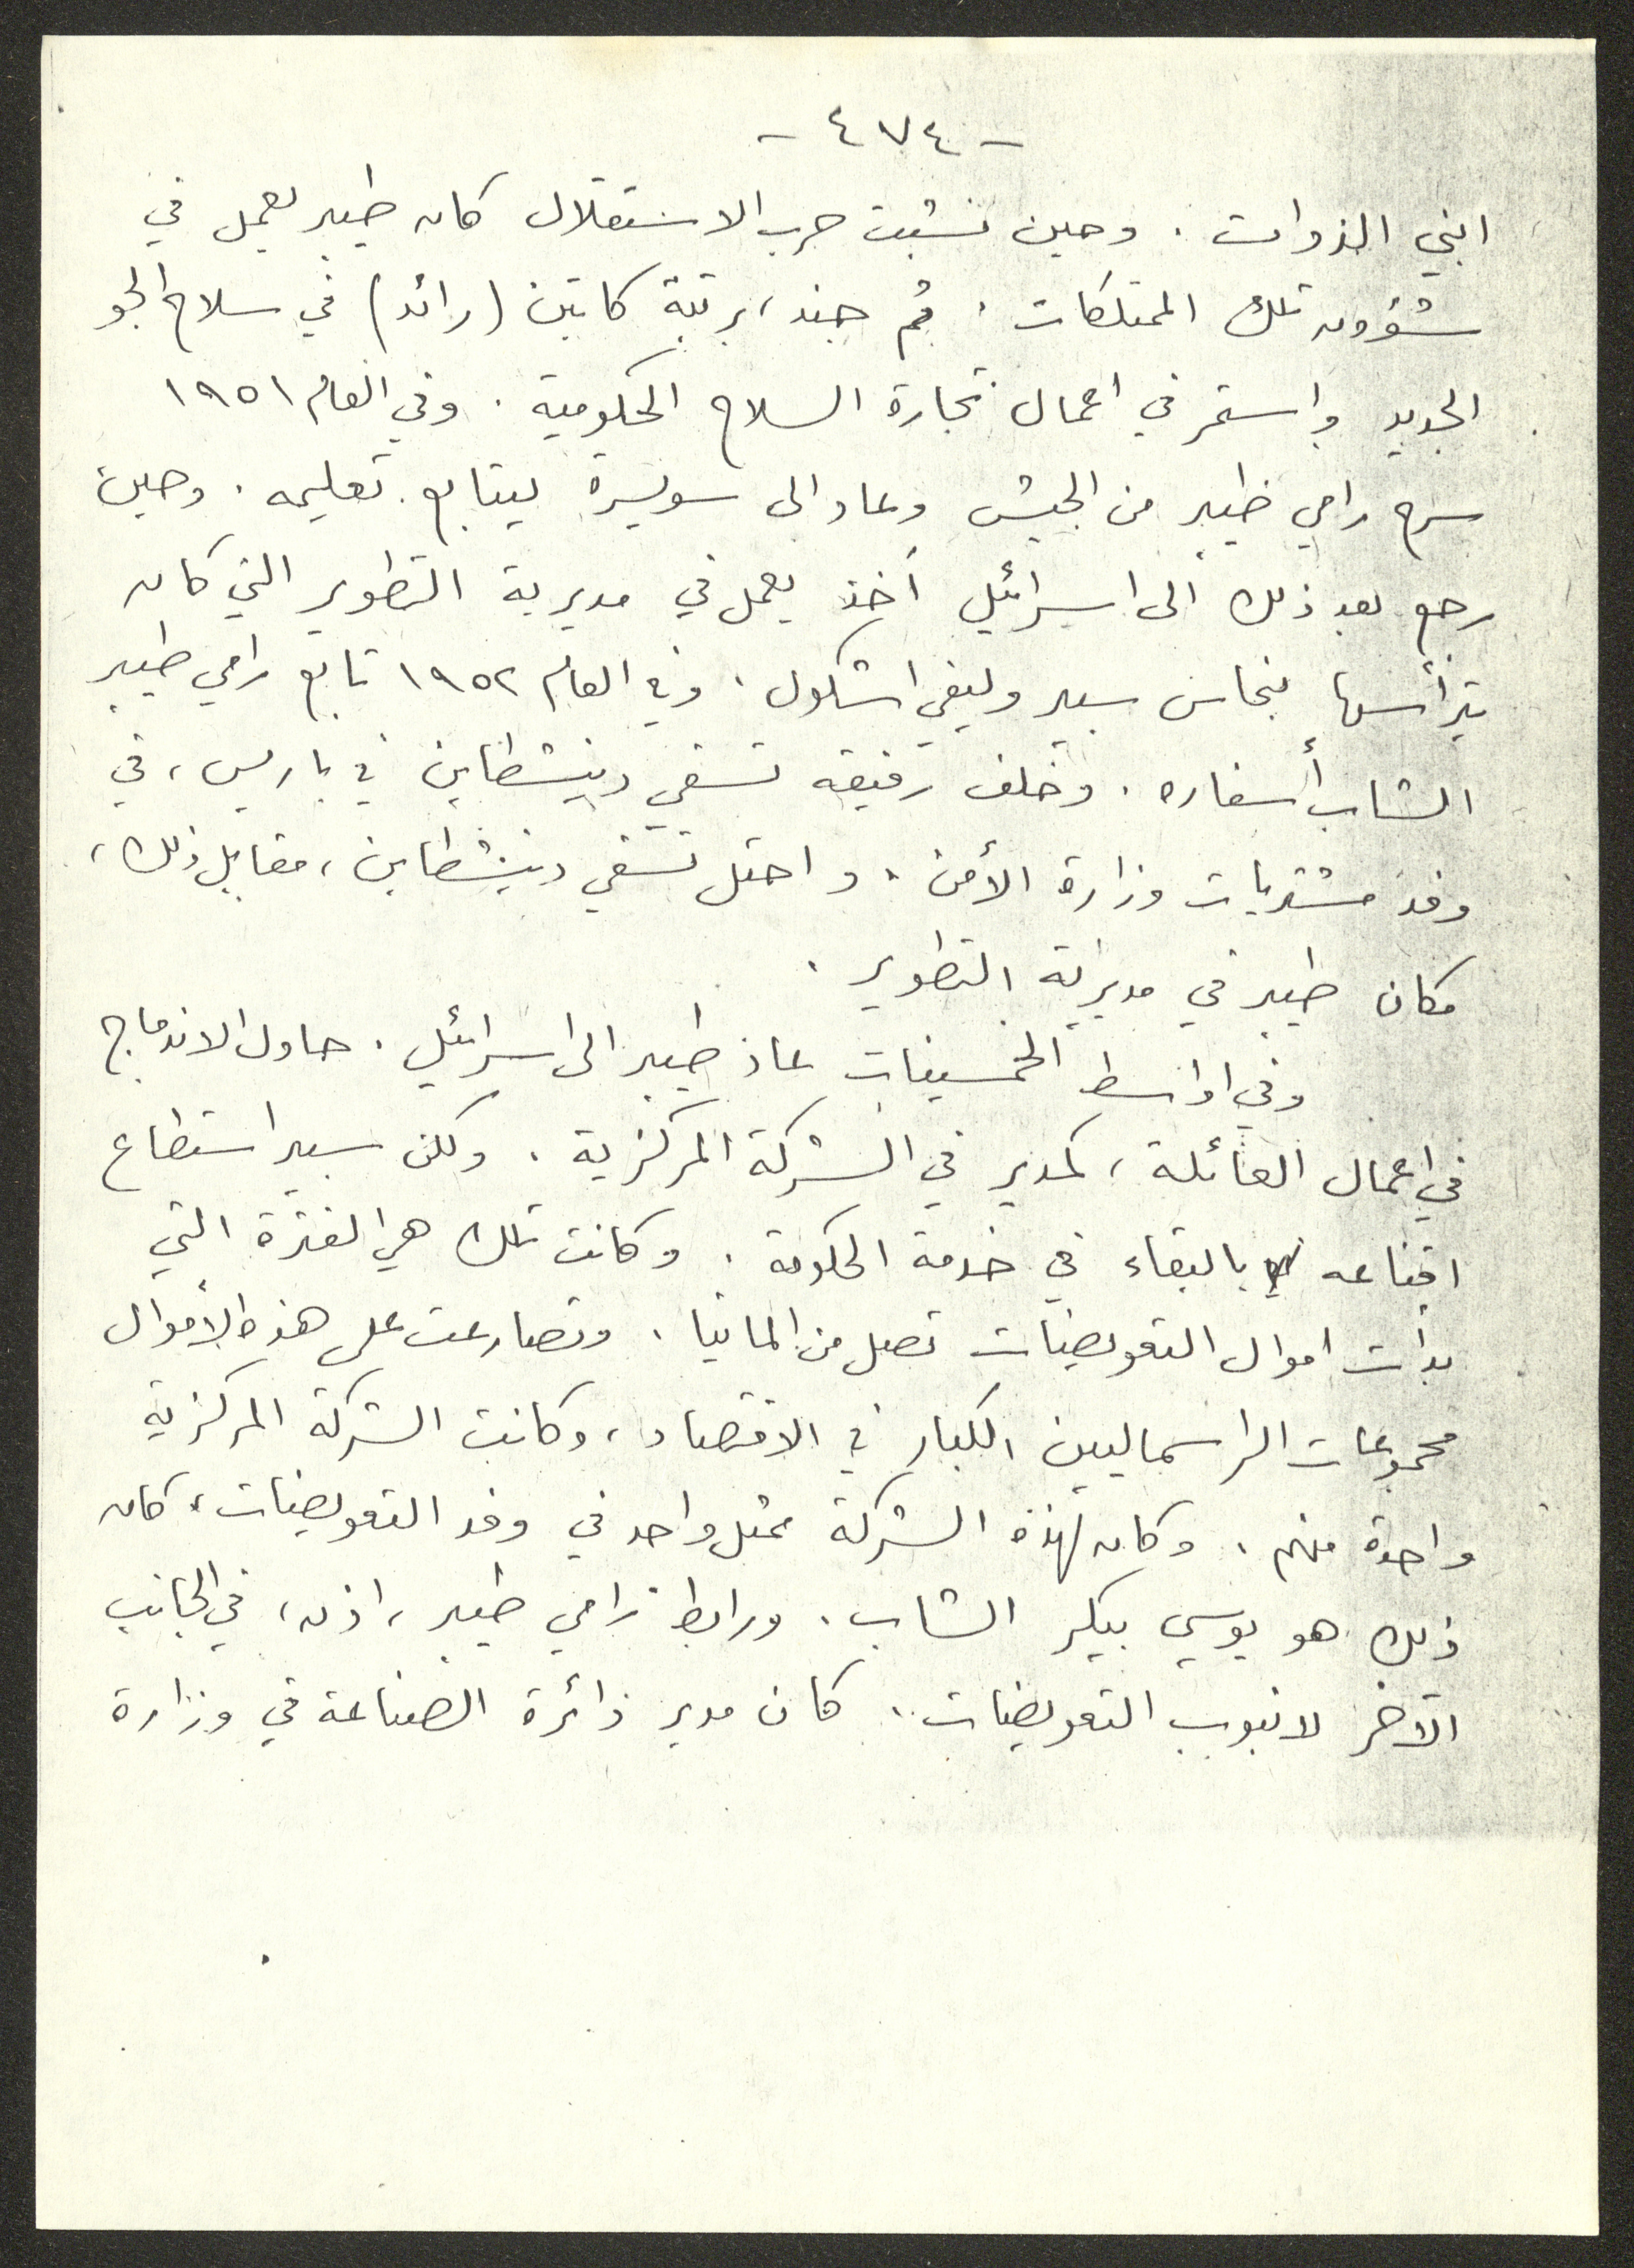 - ٤٧٤ -
ابني الذوات . وحين نشبت حرب الاستقلال كان طيبر يعمل في
شؤون تلك الممتلكات . ثم جند ، برتبة كابتن (رائد) في سلاح الجو
الجديد واستمر في اعمال تجارة السلاح الحكومية . وفي العام ١٩٥١
سرح رامي طيبر من الجيش وعاد الى سويسرة ليتابع تعليمه . وحين
رجع بعد ذلك الى اسرائيل أخذ يعمل في مديرية التطوير التي كان
يترأسها بنحاس سبير وليفي اشكول . وفي العام ١٩٥٢ تابع رامي طيبر
الشاب أسفاره . وخلف رفيقه تسفي دينشطاين في باريس ، في
وفد مشتريات وزارة الأمن . واحتل تسفي دينشطاين ، مقابل ذلك ،
مكان طيبر في مديرية التطوير .
وفي اواسط الخمسينات عاد طيبر الى اسرائيل . حاول الاندماج
في اعمال العائلة ، كمدير في الشركة المركزية . ولكن سبير استطاع
اقناعه بالبقاء في خدمة الحكومة . وكانت تلك هي الفترة التي
بدأت اموال التعويضات تصل من المانيا . وتصارعت على هذه الأموال
مجموعات الراسماليين الكبار في الاقتصاد ، وكانت الشركة المركزية
واحدة منهم . وكان لهذه الشركة ممثل واحد في وفد التعويضات ، كان
ذلك هو يوسي بيكر الشاب . ورابط رامي طيبر ، اذن ، في الجانب
الآخر لانبوب التعويضات . كان مدير دائرة الصناعة في وزارة